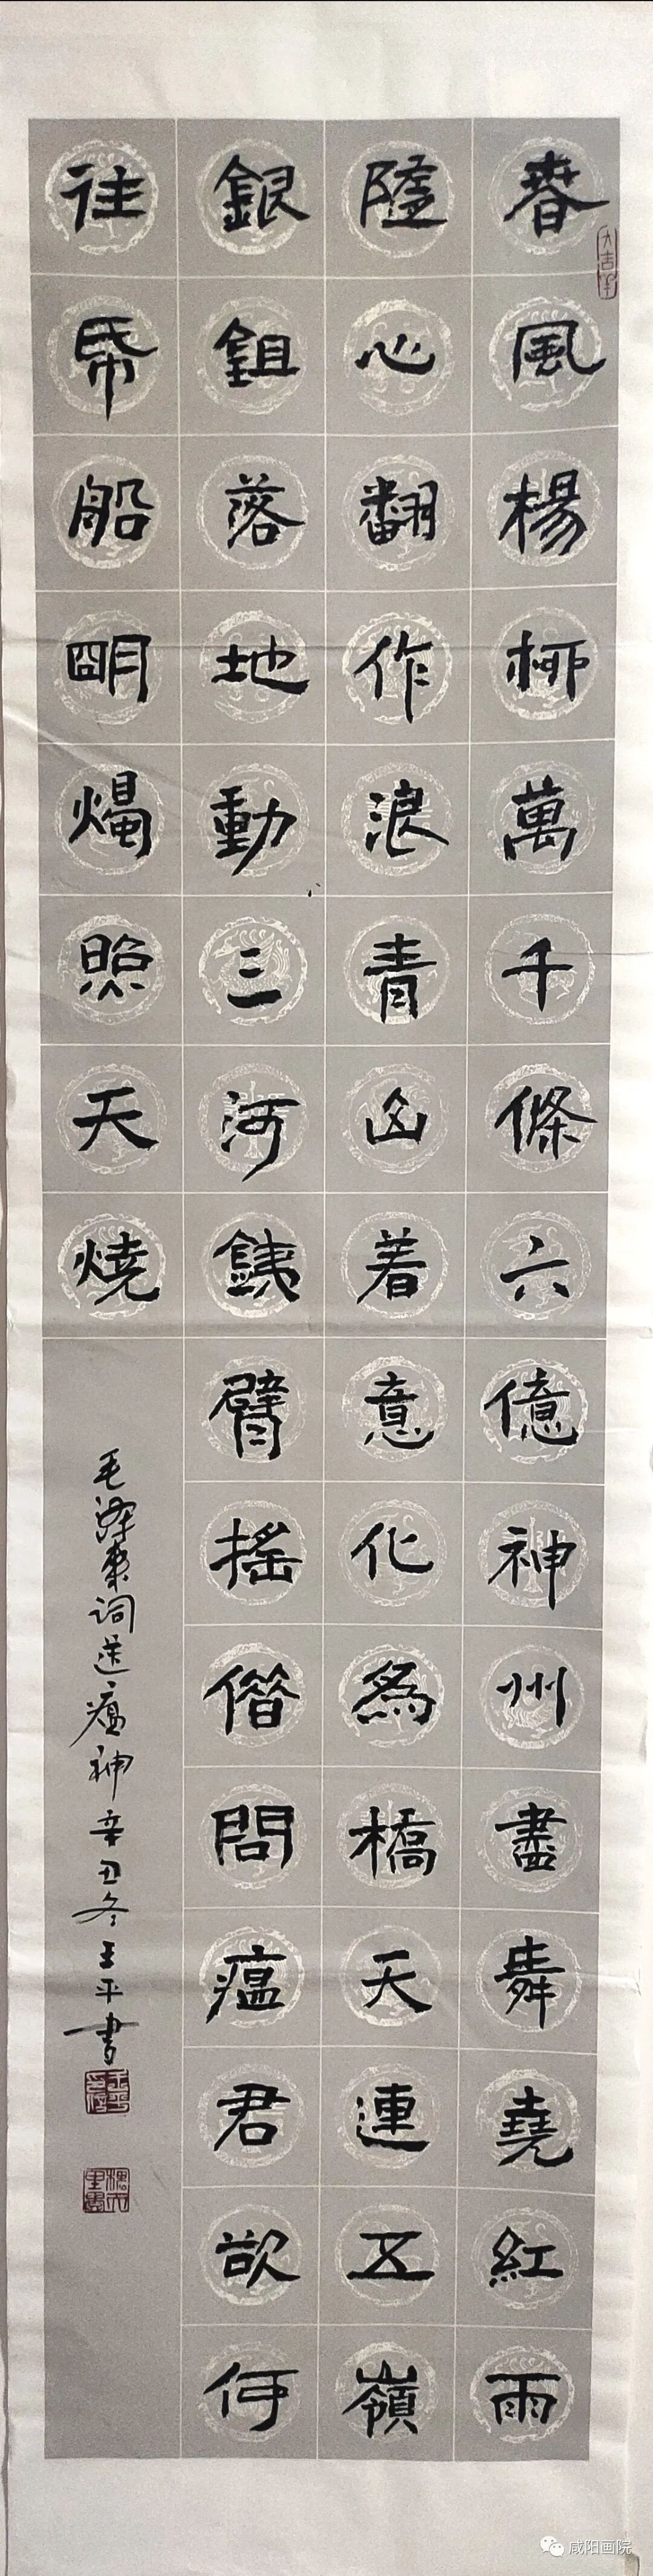 大吉羊
春風楊柳萬千條六億神州盡舜堯紅雨
隨心翻作浪青山着意化為橋天連五嶺
銀鉏落地動三河銕臂搖借問瘟君欲何
往帋船明燭照天燒
毛澤東詞送瘟神辛丑冬王平書
咸阳画院